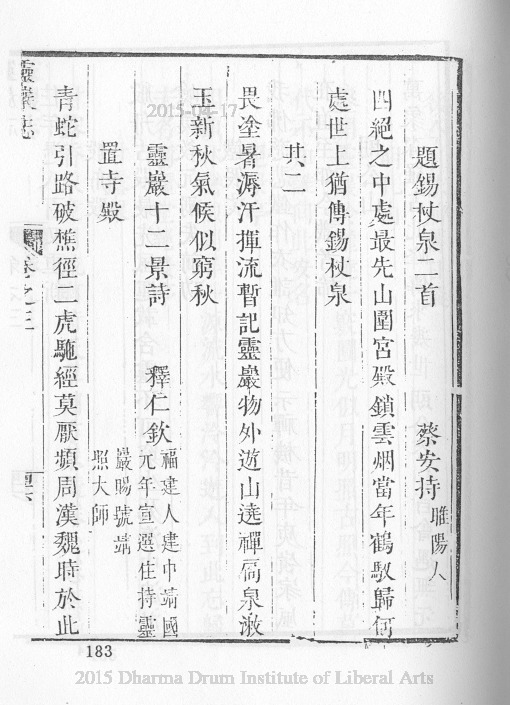 題錫杖泉二首 蔡安持 睢陽人
四絕之中處最先山圍宮殿鎖雲烟當年鶴馭歸何
處世上猶傳錫杖泉
其二
畏塗暑溽汗揮流暫記靈巖物外遊山遶禪扃泉漱
玉新秋氣候似窮秋
靈巖十二景詩 釋仁欽 福建人建中靖國
元年宣選住持靈
巖賜號靖
照大師
置寺殿
青蛇引路破樵徑二虎馱經莫厭頻周漢魏時於此
靈巖志
卷之三
183
2015-04-17
2015 Dharma Drum Institute of Liberal Arts